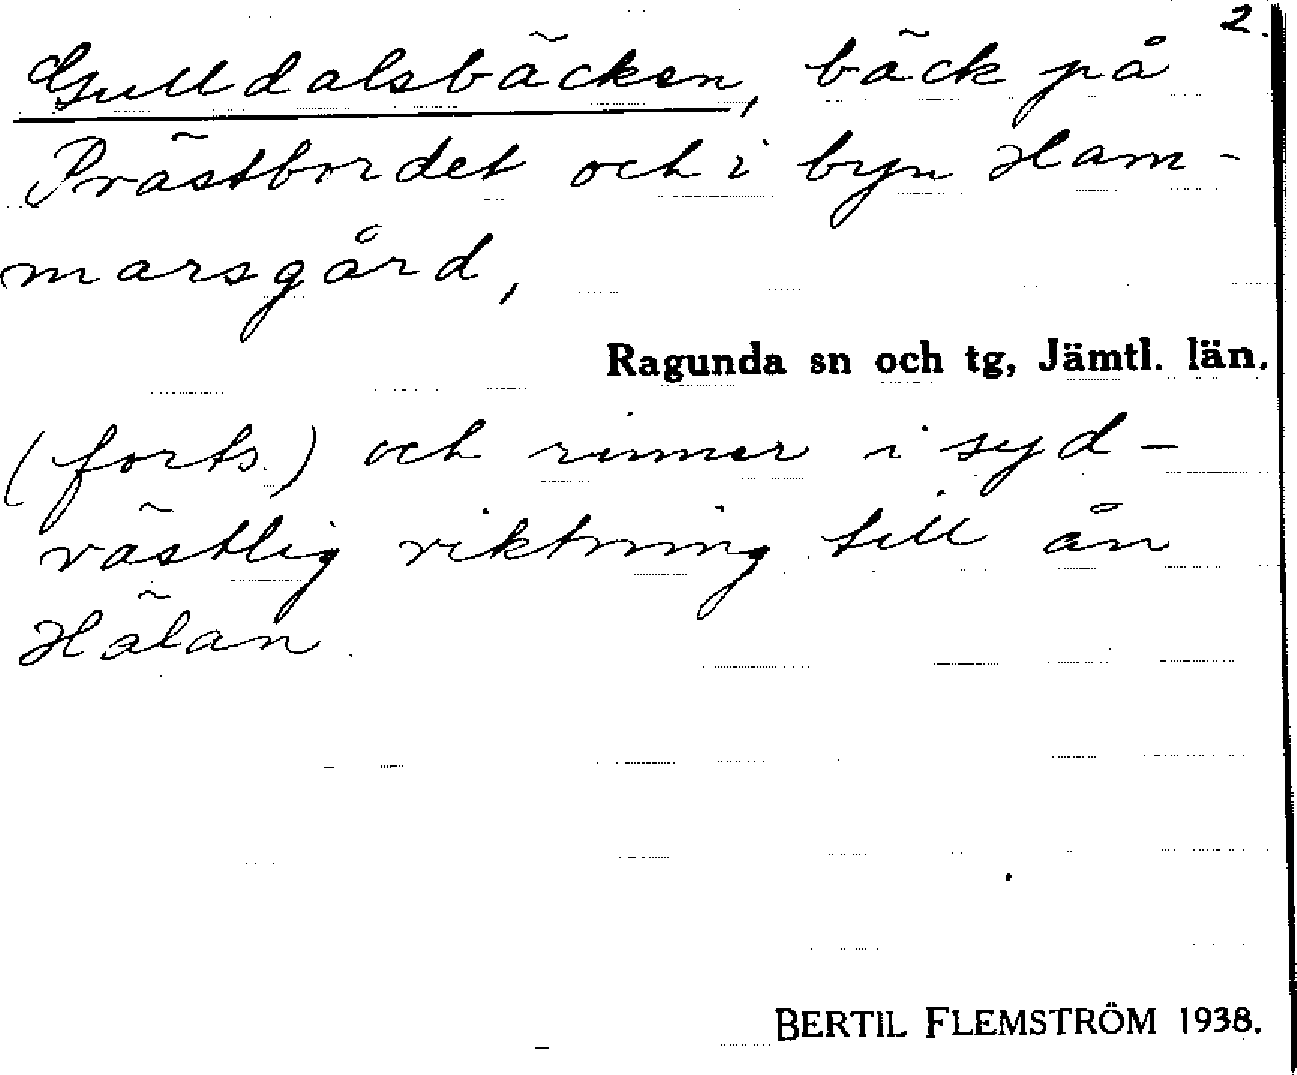 2.
Gulldalsbäcken, bäck på
Prästbordet och i byn Ham-
marsgård,
Ragunda sn och tg, Jämtl. län.
(forts.) och rinner i syd-
västlig riktning till ån
Hälan.
BERTIL FLEMSTRÖM 1938.